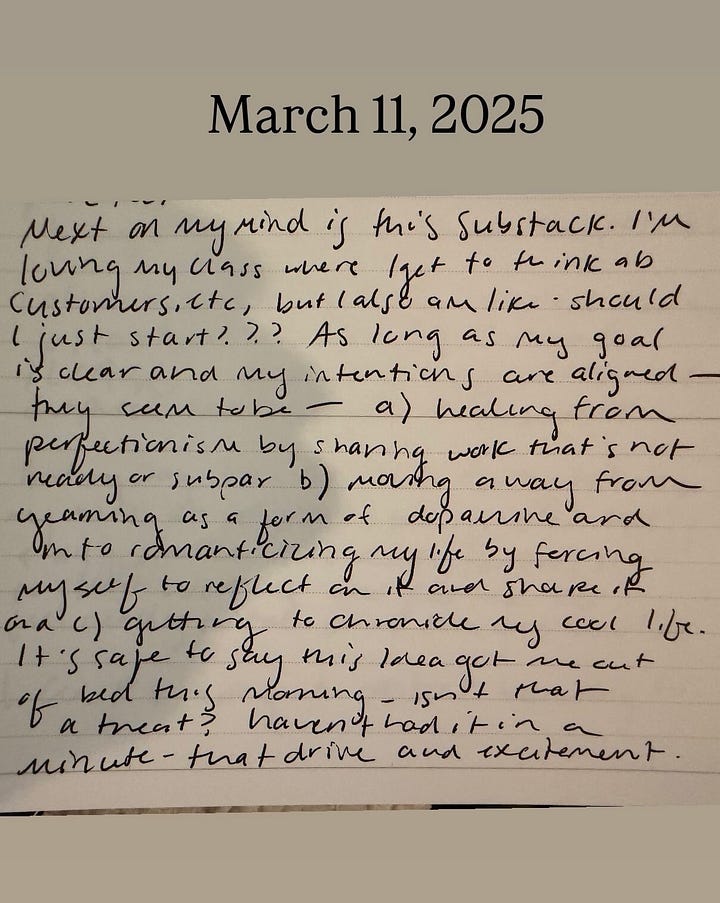 March 11, 2025
Next on my mind is this Substack. I'm
loving my class where I get to think ab
customers, etc, but I also am like - should
I just start??? As long as my goal
is clear and my intentions are aligned —
they seem to be — a) healing from
perfectionism by sharing work that's not
ready or subpar b) moving away from
yearning as a form of dopamine and
onto romanticizing my life by forcing
myself to reflect on it and share it
and c) getting to chronicle my cool life.
It's safe to say this idea got me out
of bed this morning - isn't that
a treat? haven't had it in a
minute - that drive and excitement.